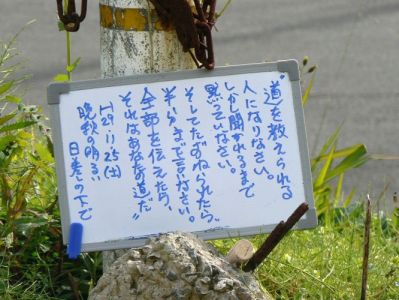 “道を教えられる
人になりなさい。
しかし聞かれるまで
黙っていなさい。
そしてたずねられたら、
そこまで言いなさい。
全部を伝えたら、
それはあなたの道だ”
H29.11.25(土)
晩秋の明るい
日差の下で